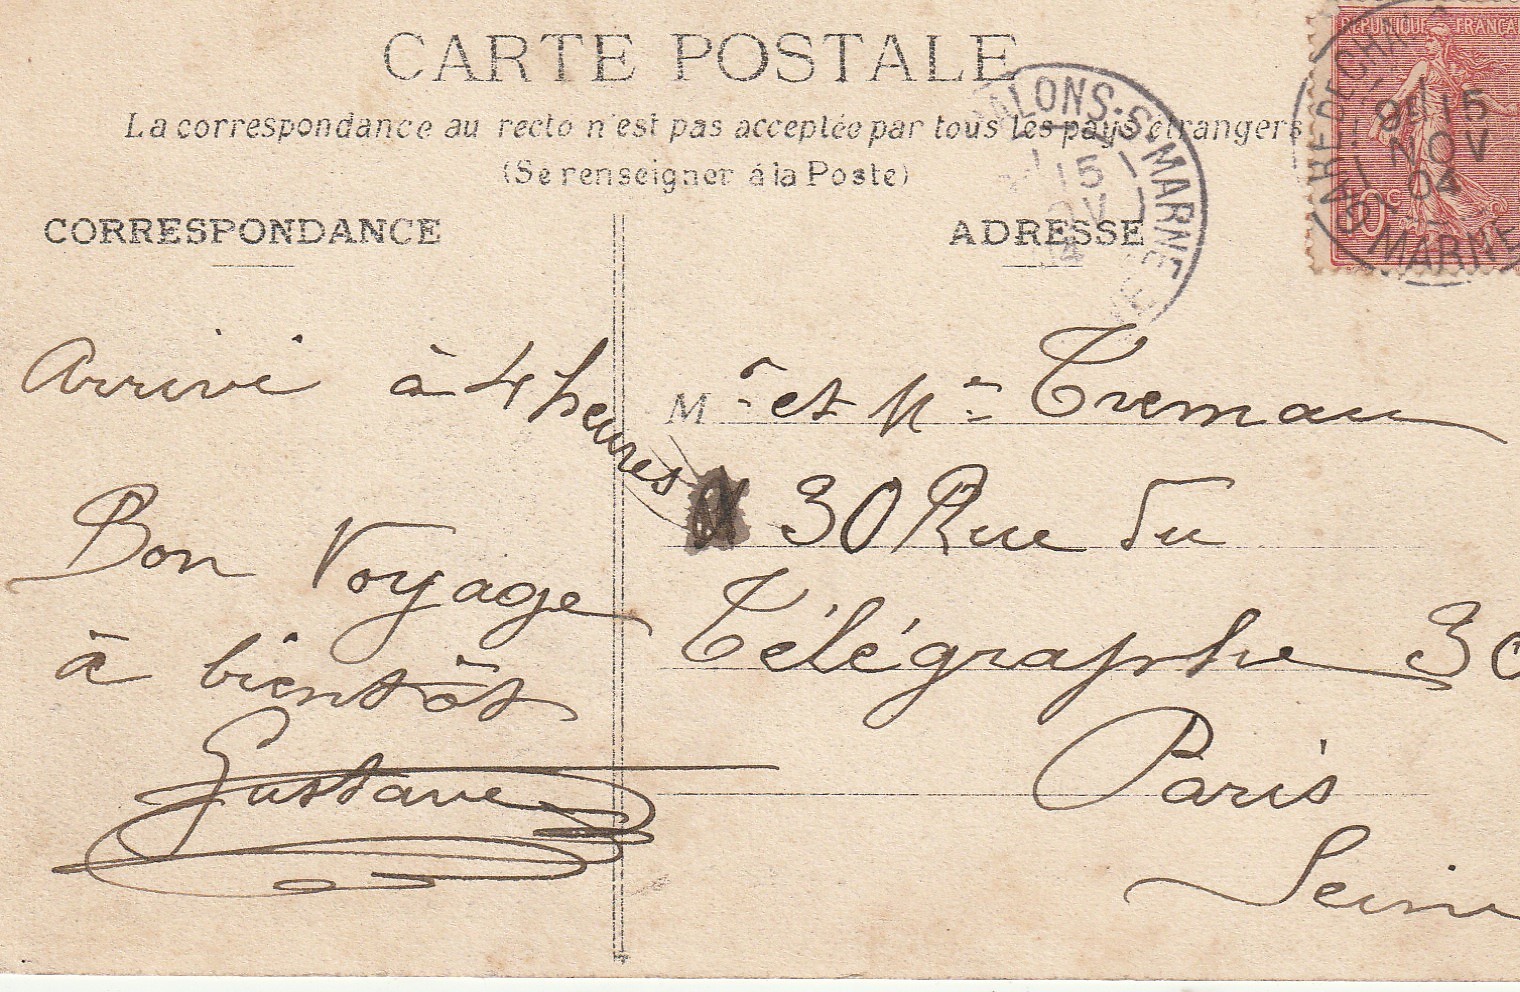 CARTE POSTALE
La correspondance au recto n'est pas acceptée par tous les pays étrangers
(Se renseigner à la Poste)
CORRESPONDANCE
ADRESSE
Arrivé à 4 heures
Bon Voyage
à bientôt
Gustave
Mr et Me Tremau
30 Rue du
Télégraphe 30
Paris
Seine
ALONS-S-MARNE
15
REPUBLIQUE FRANÇA
10c
15
NOV
04
MARNE